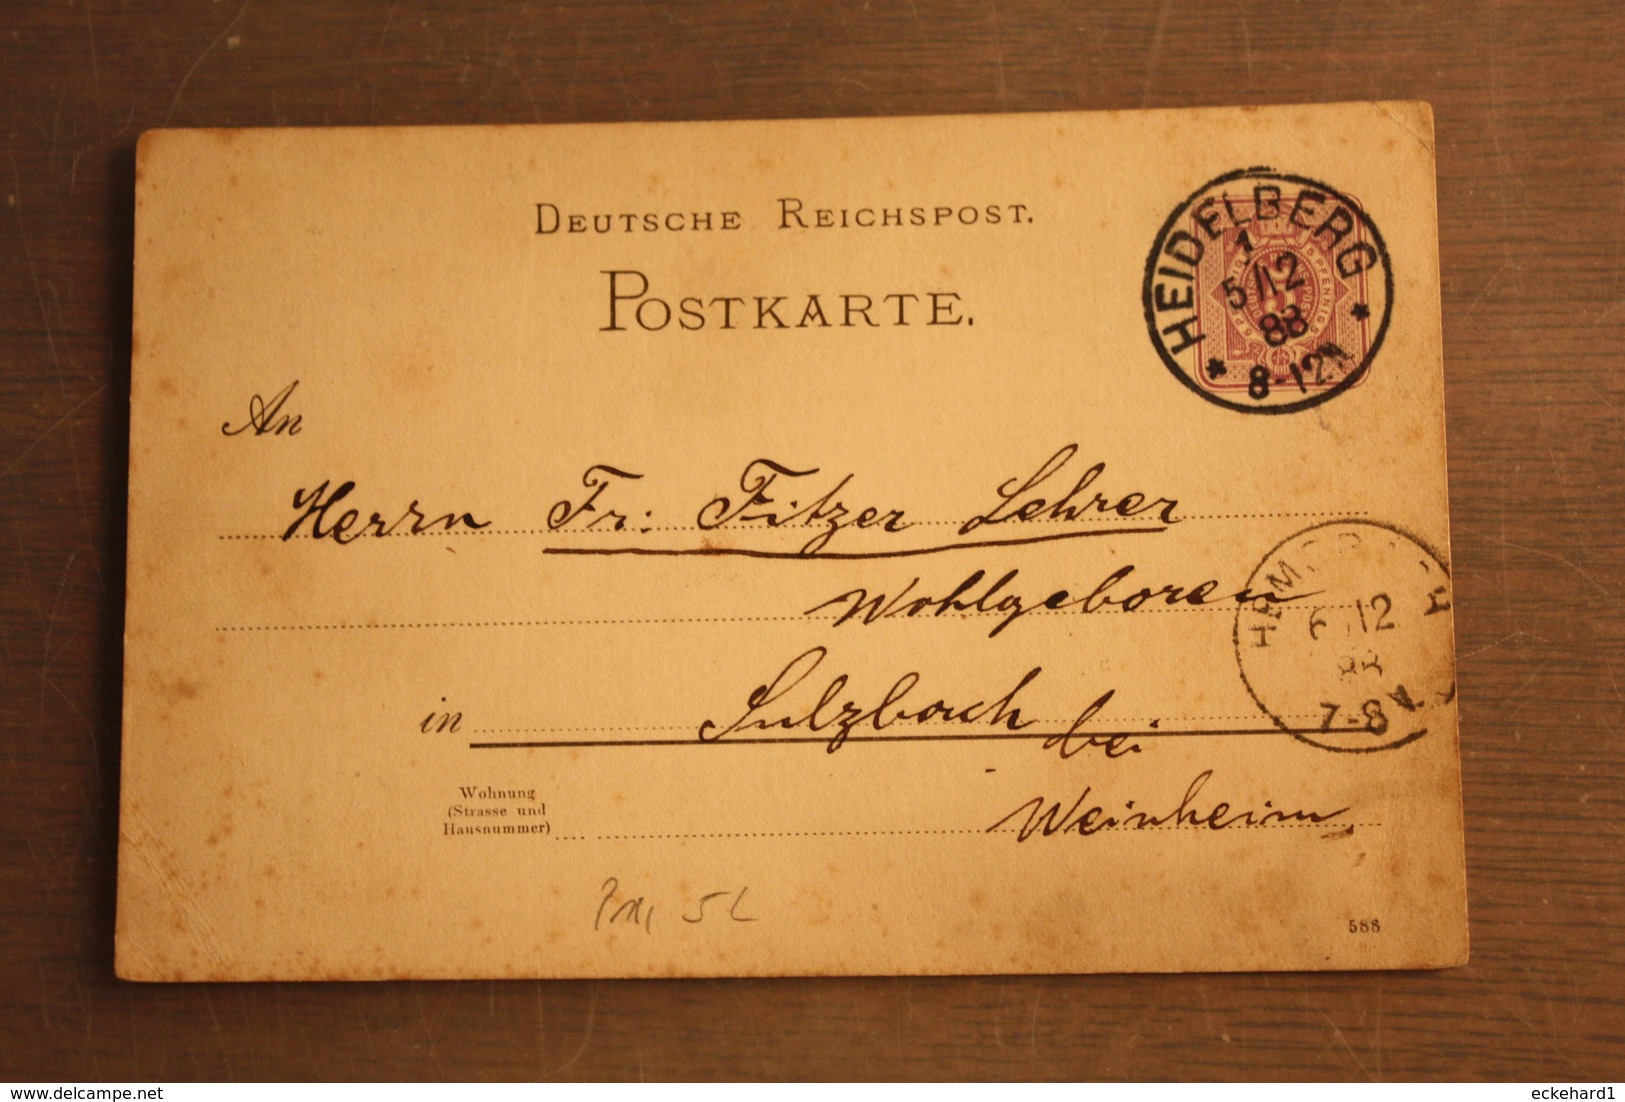 DEUTSCHE REICHSPOST.
POSTKARTE.
HEIDELBERG
1
5/12
88
8-12N
* *
5 PFENNIG
An
Herrn Fr: Fitzer Lehrer
Wohlgeboren
in Sulzbach
bei
Weinheim.
6/12
88
7-8V.
Wohnung
(Strasse und
Hausnummer)
5
588
delcampe.net
eckehard1